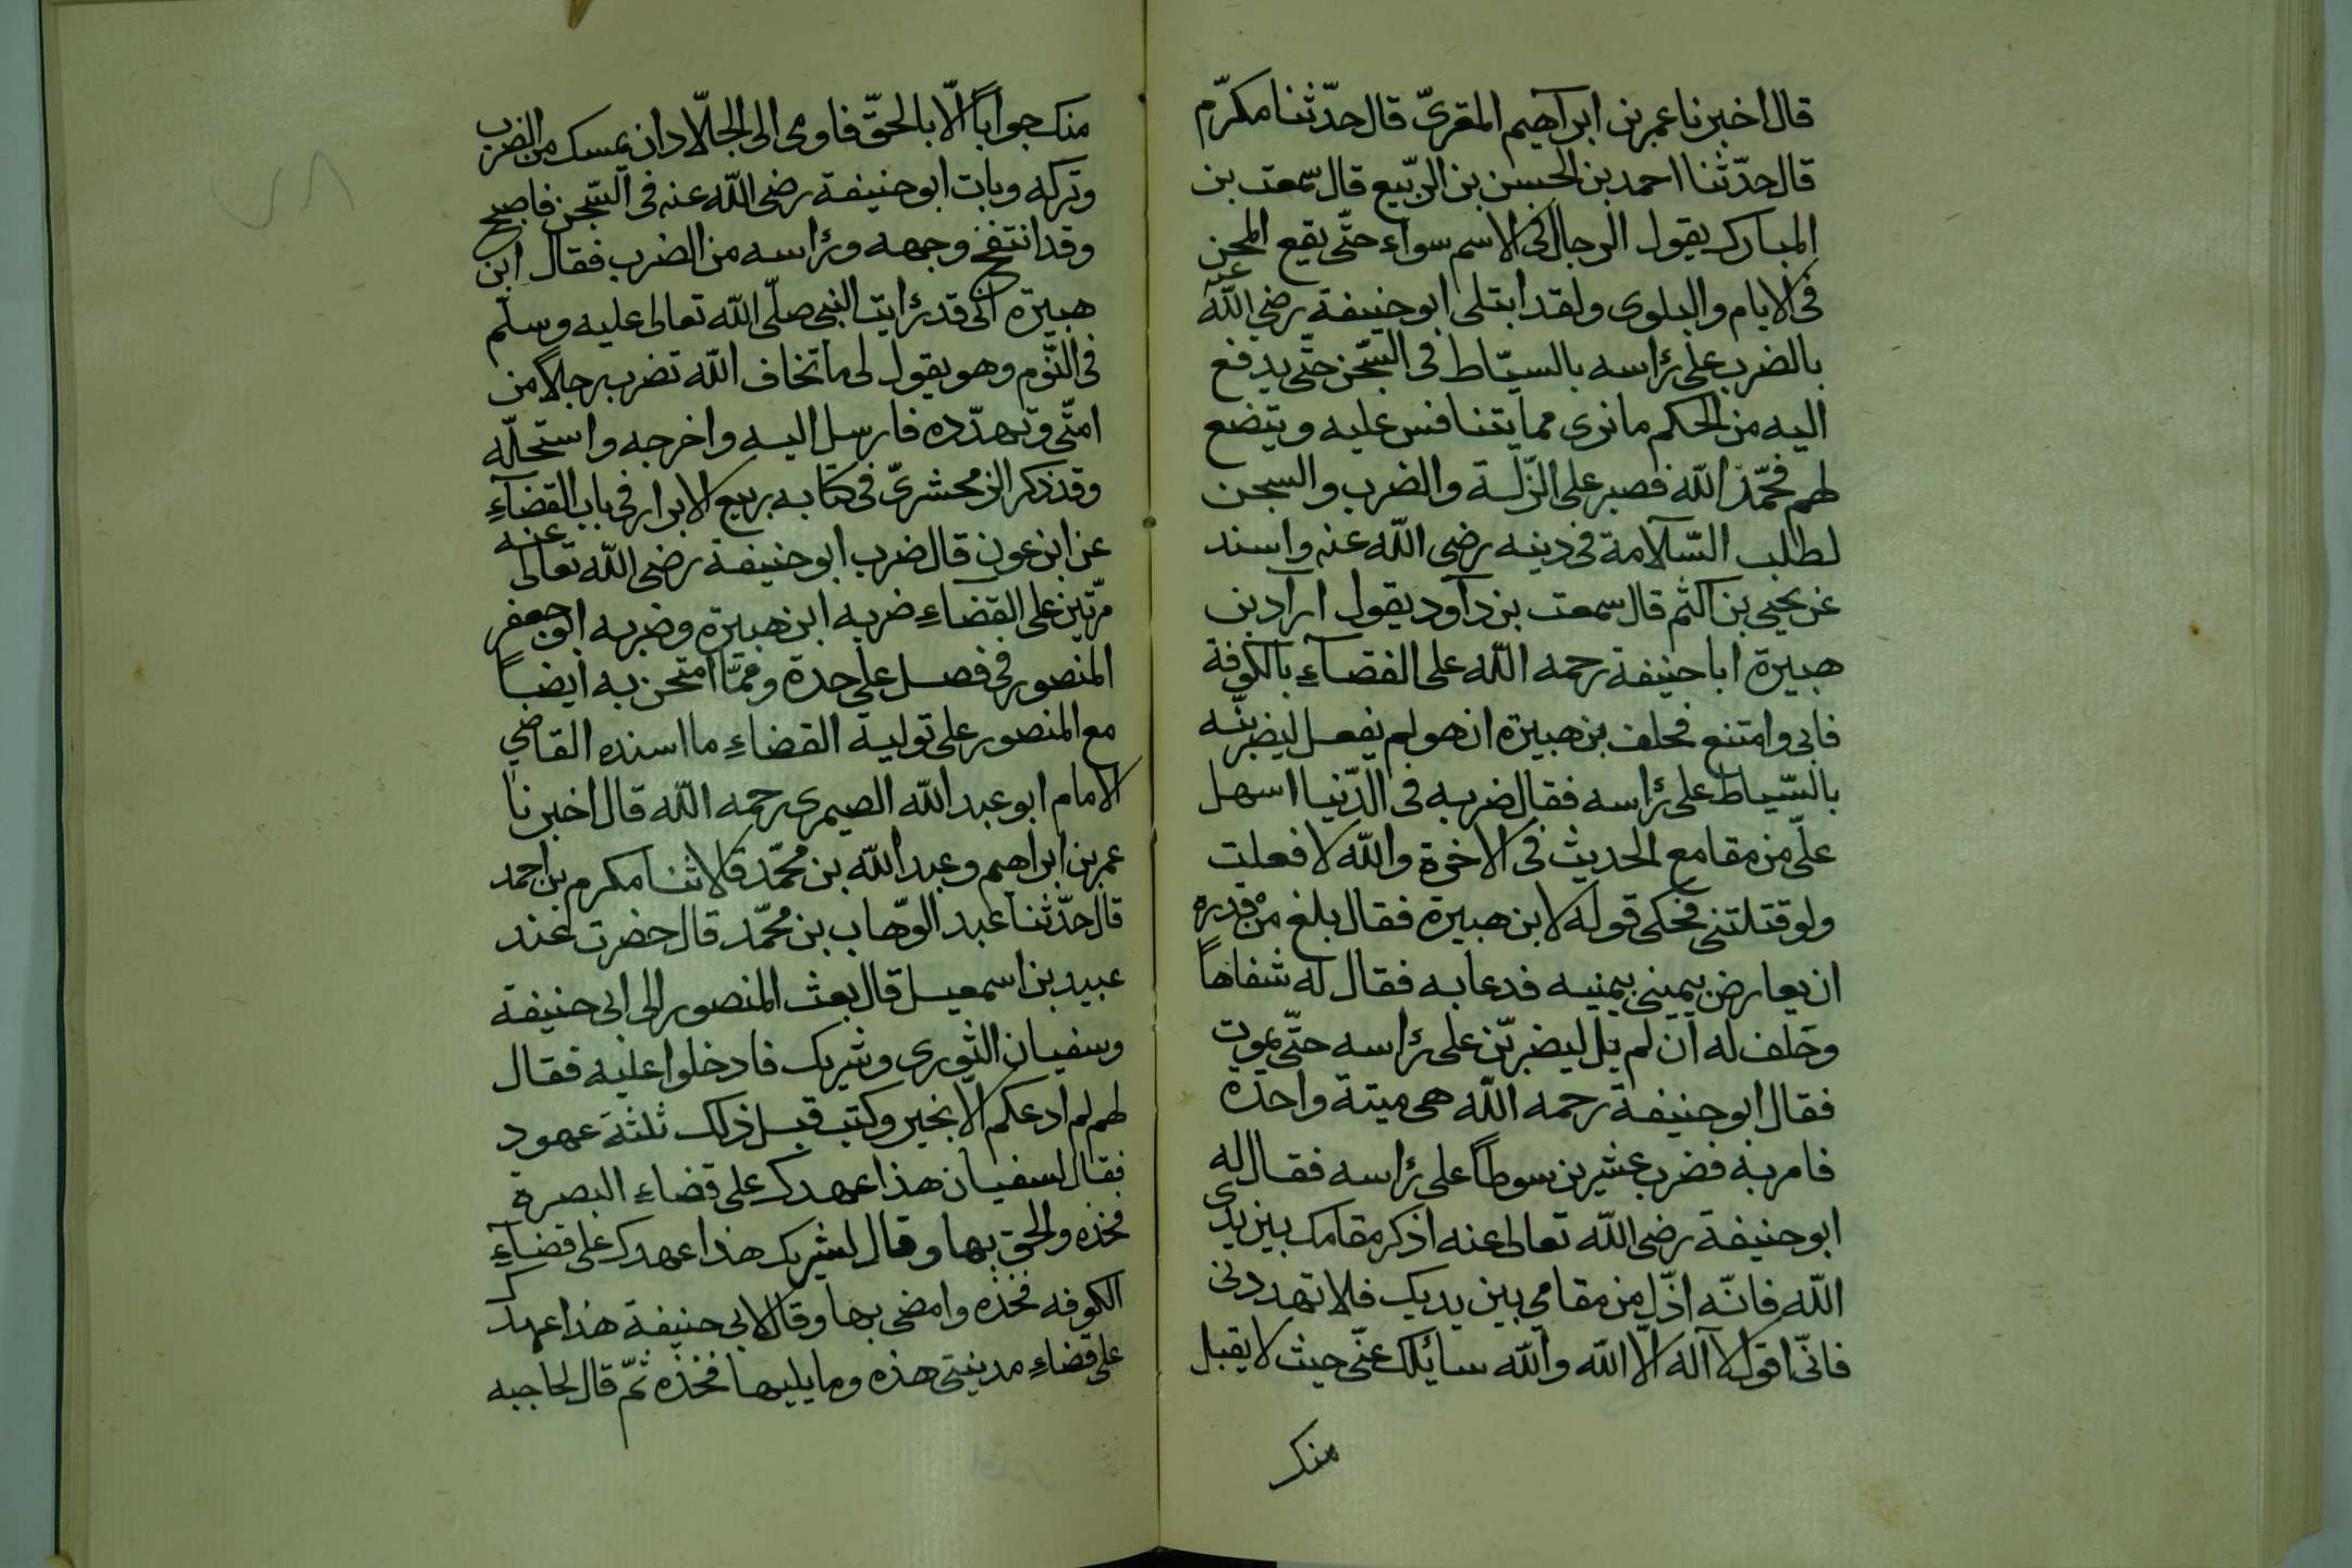 قال اخبرنا عمر بن ابراهيم المقرىّ قال حدّثنا مكرّم
قال حدّثنا احمد بن الحسن بن الربّيع قال سمعت بن
المبارك يقول الرجال فى الاسم سواء حتّى يقع المحن
فى الايام والبلوى ولقد ابتلى ابو حنيفة رضى اللّه عنه
بالضرب على رأسه بالسيّاط فى السّجن حتّى يدفع
اليه من الحكم ما نرى مما يتنافس عليه ويتضع
لهم فحمّد اللّه فصبر على الزّلة والضرب والسجن
لطلب السّلامة فى دينه رضى اللّه عنه واسند
عن يحيى بن اكثم قال سمعت بن داود يقول اراد بن
هبيرة ابا حنيفة رحمه اللّه على القضاء بالكوفة
فابى وامتنع فحلف بن هبيرة ان هو لم يفعل ليضربنّه
بالسّياط على رأسه فقال ضربه فى الدّنيا اسهل
علىّ من مقامع الحديث فى الاخرة واللّه لا فعلت
ولو قتلتنى فحكى قوله لابن هبيرة فقال بلغ من قدره
ان يعارض يمينى بيمنيه فدعا به فقال له شفاهاً
وحلف له ان لم يل ليضربّن على رأسه حتّى يموت
فقال ابو حنيفة رحمه اللّه هى ميتة واحدة
فامر به فضرب عشرين سوطاً على رأسه فقال له
ابو حنيفة رضى اللّه تعالى عنه اذكر مقامك بين يدى
اللّه فانّه اذّل من مقامي بين يديك فلا تهددنى
فانّى اقول لا آله الّا اللّه واللّه سائلك عنّى حيث لا يقبل
منك
منك جواباً الّا بالحقّ فاومى الى الجلّاد ان يمسك من الضرب
وتركه وبات ابو حنيفة رضى اللّه عنه فى السّجن فاصبح
وقد انتفخ وجهه ورأسه من الضرب فقال ابن
هبيرة انّى قد رأيت النبى صلّى اللّه تعالى عليه وسلّم
فى النّوم وهو يقول لى ما تخاف اللّه تضرب رجلاً من
امتّى وتهدّده فارسل اليه واخرجه واستحلّه
وقد ذكر الزمحشرىّ فى كتابه ربيع الابرار فى باب القضاء
عن ابن عون قال ضرب ابو حنيفة رضى اللّه تعالى عنه
مرّتين على القضاء ضربه ابن هبيرة وضربه ابو جعفر
المنصور فى فصل على حدة وممّا امتحن به ايضاً
مع المنصور على تولية القضاء ما اسنده القاضي
الامام ابو عبد اللّه الصيمرى رحمه اللّه قال اخبرنا
عمر بن ابراهيم وعبد اللّه بن محمّد قالا ثنا مكرم بن احمد
قال حدّثنا عبد الوّهاب بن محمّد قال حضرت عند
عبيد بن اسمعيل قال بعث المنصور الى ابى حنيفة
وسفيان الثورى وشريك فادخلوا عليه فقال
لهم لم ادعكم الّا بخير وكتب قبل ذلك ثلثة عهود
فقال لسفيان هذا عهدك على قضاء البصرة
فخذه والحق بها وقال لشريك هذا عهدك على قضاء
الكوفه فخذه وامض بها وقال لابى حنيفة هذا عهدك
على قضاء مدينتى هذه وما يليها فخذه ثمّ قال لحاجبه